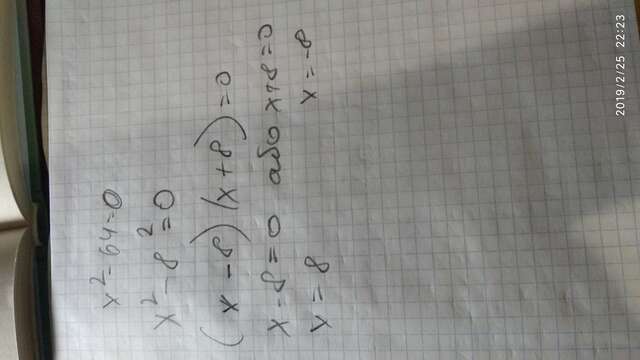 x² - 64 = 0
x² - 8² = 0
(x - 8)(x + 8) = 0
x - 8 = 0 або x + 8 = 0
x = 8 x = -8
2019/2/25 22:23